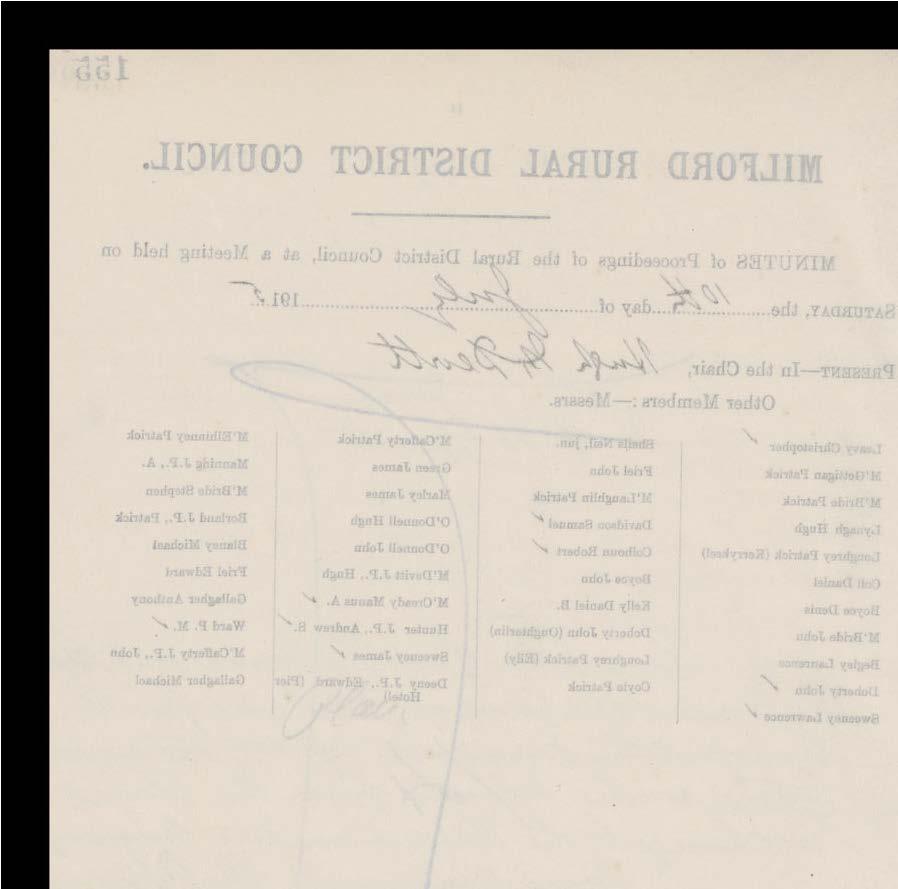 155
MILFORD RURAL DISTRICT COUNCIL.
MINUTES of Proceedings of the Rural District Council, at a Meeting held on
SATURDAY, the 10th day of July 1915
PRESENT—In the Chair, Hugh McDevitt
Other Members :—Messrs.
Leavy Christopher
M'Gettigan Patrick
M'Bride Patrick
Lynagh Hugh
Loughrey Patrick (Kerrykeel)
Coll Daniel
Boyce Denis
M'Bride John
Begley Lawrence
Doherty John
Sweeney Lawrence
Sheils Neil, jun.
Friel John
M'Laughlin Patrick
Davidson Samuel
Colhoun Robert
Boyce John
Kelly Daniel B.
Doherty John (Oughterlin)
Loughrey Patrick (Elly)
Coyle Patrick
M'Cafferty Patrick
Green James
Marley James
O'Donnell Hugh
O'Donnell John
M'Devitt J.P., Hugh
M'Cready Manus A.
Hunter J.P., Andrew S.
Sweeney James
Deeny J.P., Edward (Pier
Hotel)
M'Elhinney Patrick
Manning J.P., A.
M'Bride Stephen
Borland J.P., Patrick
Blaney Michael
Friel Edward
Gallagher Anthony
Ward P. M.
M'Cafferty J.P., John
Gallagher Michael